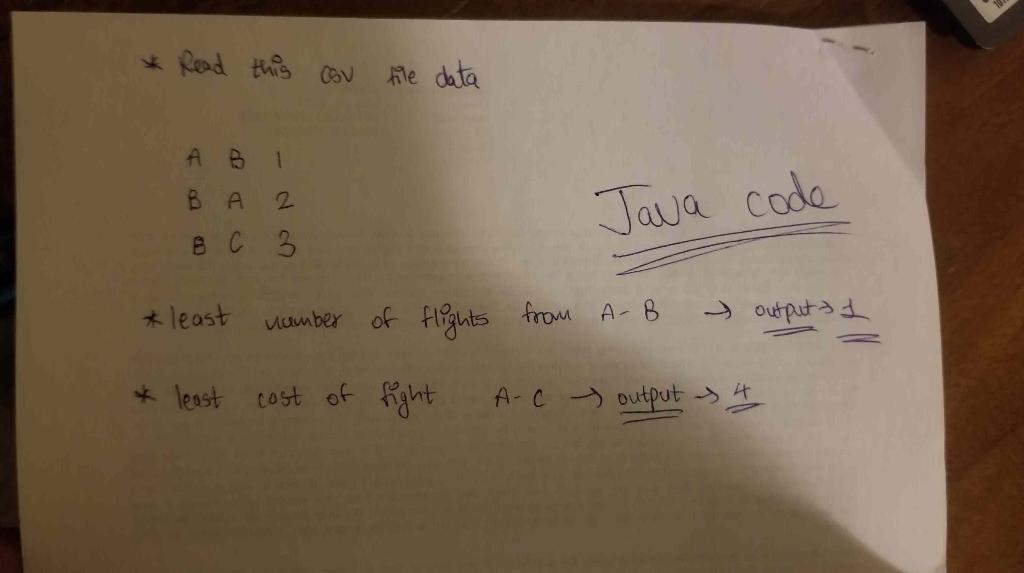 * Read this csv file data
A B 1
B A 2
B C 3
Java code
* least number of flights from A - B → output → 1
* least cost of fight A - C → output → 4